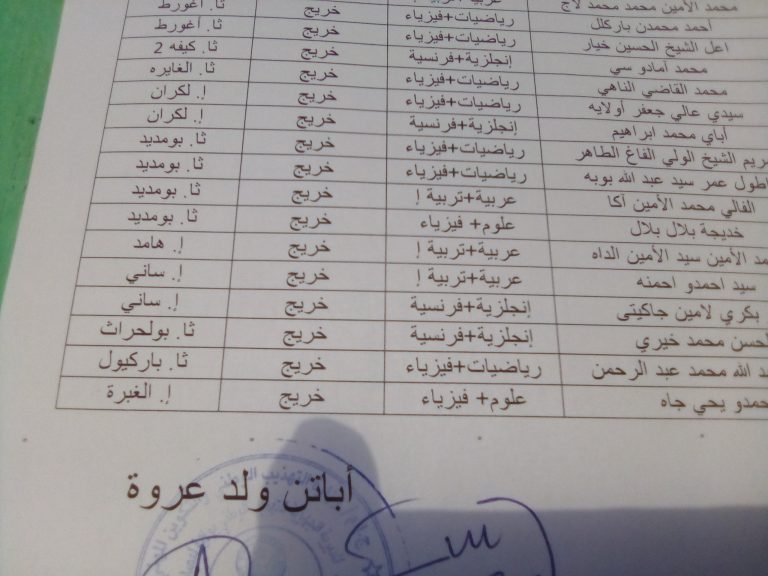 محمد الأمين محمد محمد لاج ثا. أغورط
أحمد محمدن باركلل رياضيات+فيزياء خريج ثا. أغورط
اعل الشيخ الحسين خيار رياضيات+فيزياء خريج ثا. كيفه 2
محمد آمادو سي إنجلزية+فرنسية خريج ثا. الغايره
محمد القاضي الناهي رياضيات+فيزياء خريج إ. لكران
سيدي عالي جعفر أولايه رياضيات+فيزياء خريج إ. لكران
أباي محمد ابراهيم إنجلزية+فرنسية خريج ثا. بومديد
ريم الشيخ الولي الفاغ الطاهر رياضيات+فيزياء خريج ثا. بومديد
اطول عمر سيد عبد الله بوبه رياضيات+فيزياء خريج ثا. بومديد
الفالي محمد الأمين آكا عربية+تربية إ خريج ثا. بومديد
خديجة بلال بلال علوم+ فيزياء خريج إ. هامد
مد الأمين سيد الأمين الداه عربية+تربية إ خريج إ. ساني
سيد احمدو احمنه عربية+تربية إ خريج إ. ساني
بكري لامين جاكيتى إنجلزية+فرنسية خريج ثا. بولحراث
لحسن محمد خيري إنجلزية+فرنسية خريج ثا. باركيول
د الله محمد عبد الرحمن رياضيات+فيزياء خريج إ. الغبرة
حمدو يحي جاه علوم+ فيزياء خريج
أباتن ولد عروة